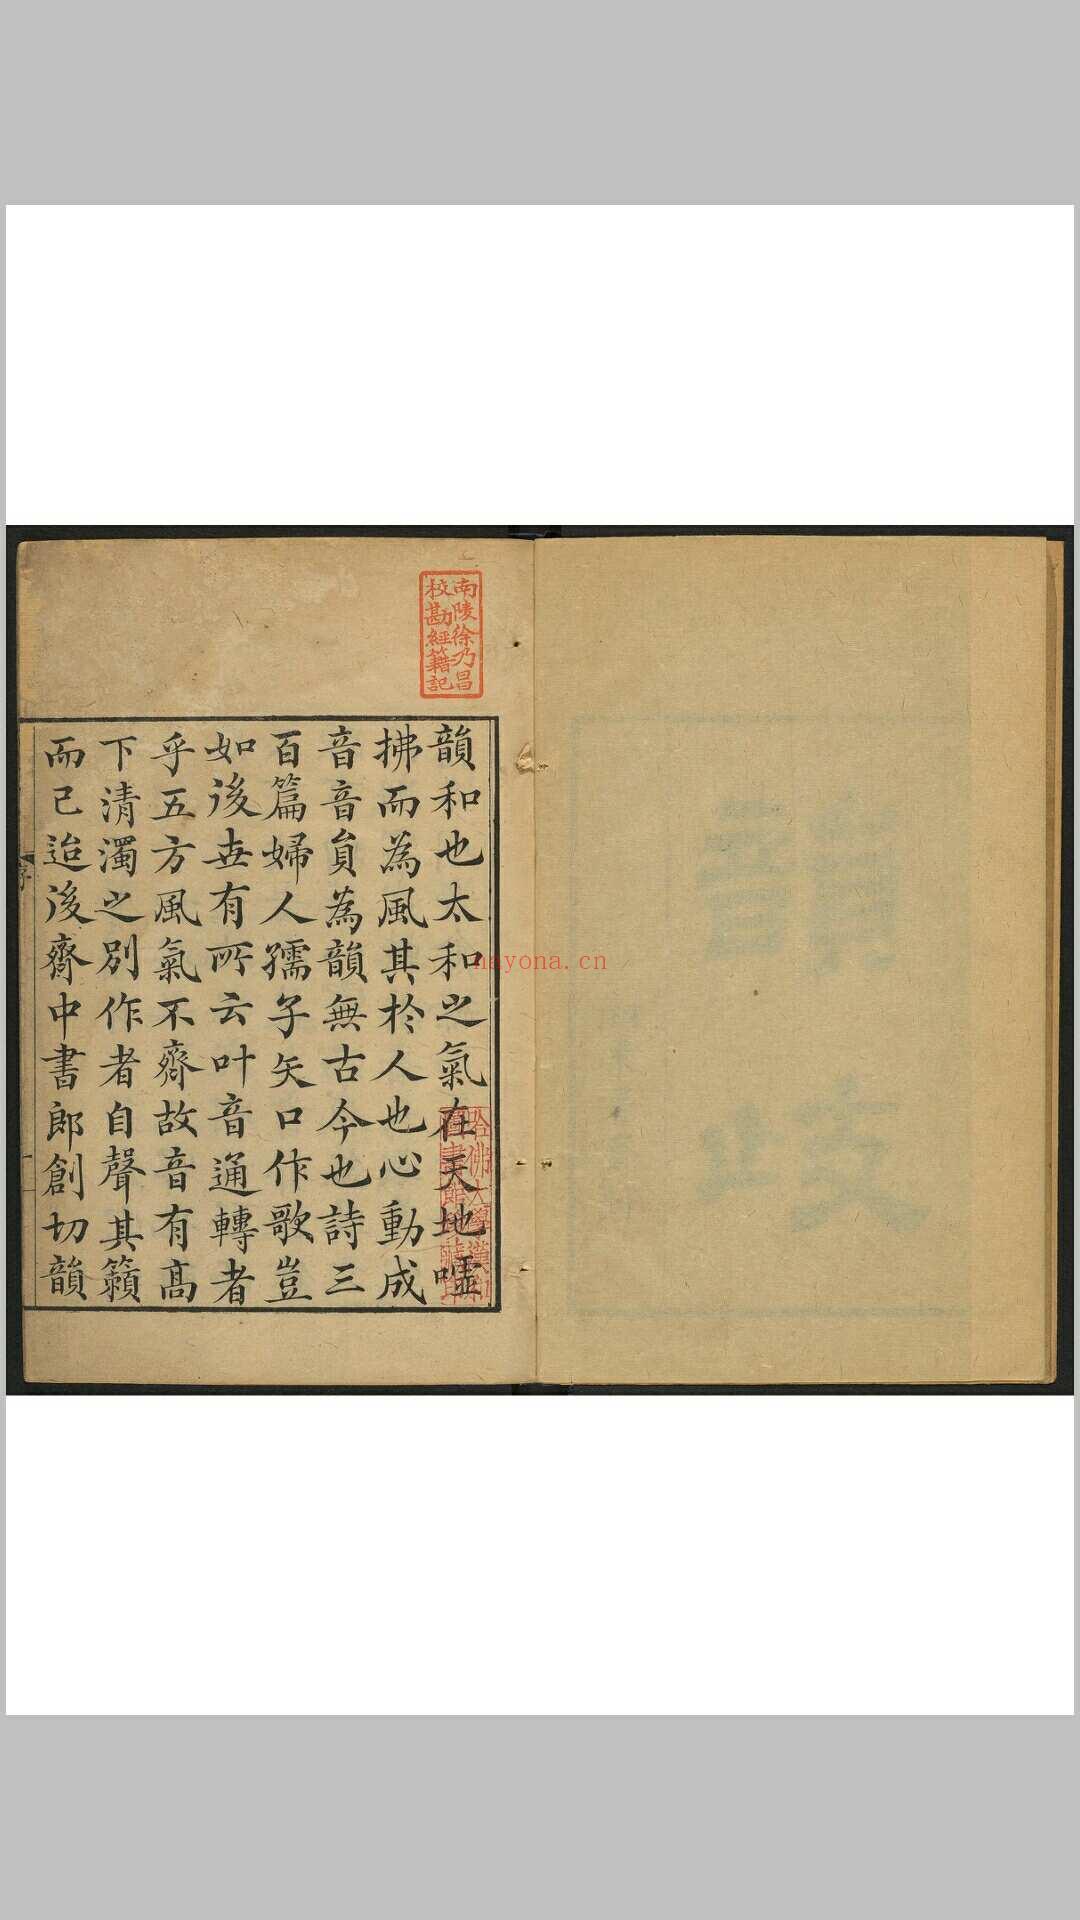 南陵徐乃昌
校勘經籍記
韻和也太和之氣在天地噓
拂而為風其於人也心動成
音音員為韻無古今也詩三
百篇婦人孺子矢口作歌豈
如後世有所云叶音通轉者
乎五方風氣不齊故音有高
下清濁之別作者自聲其籟
而已迨後齊中書郎創切韻
序
哈佛大學漢和
圖書館
nayona.cn